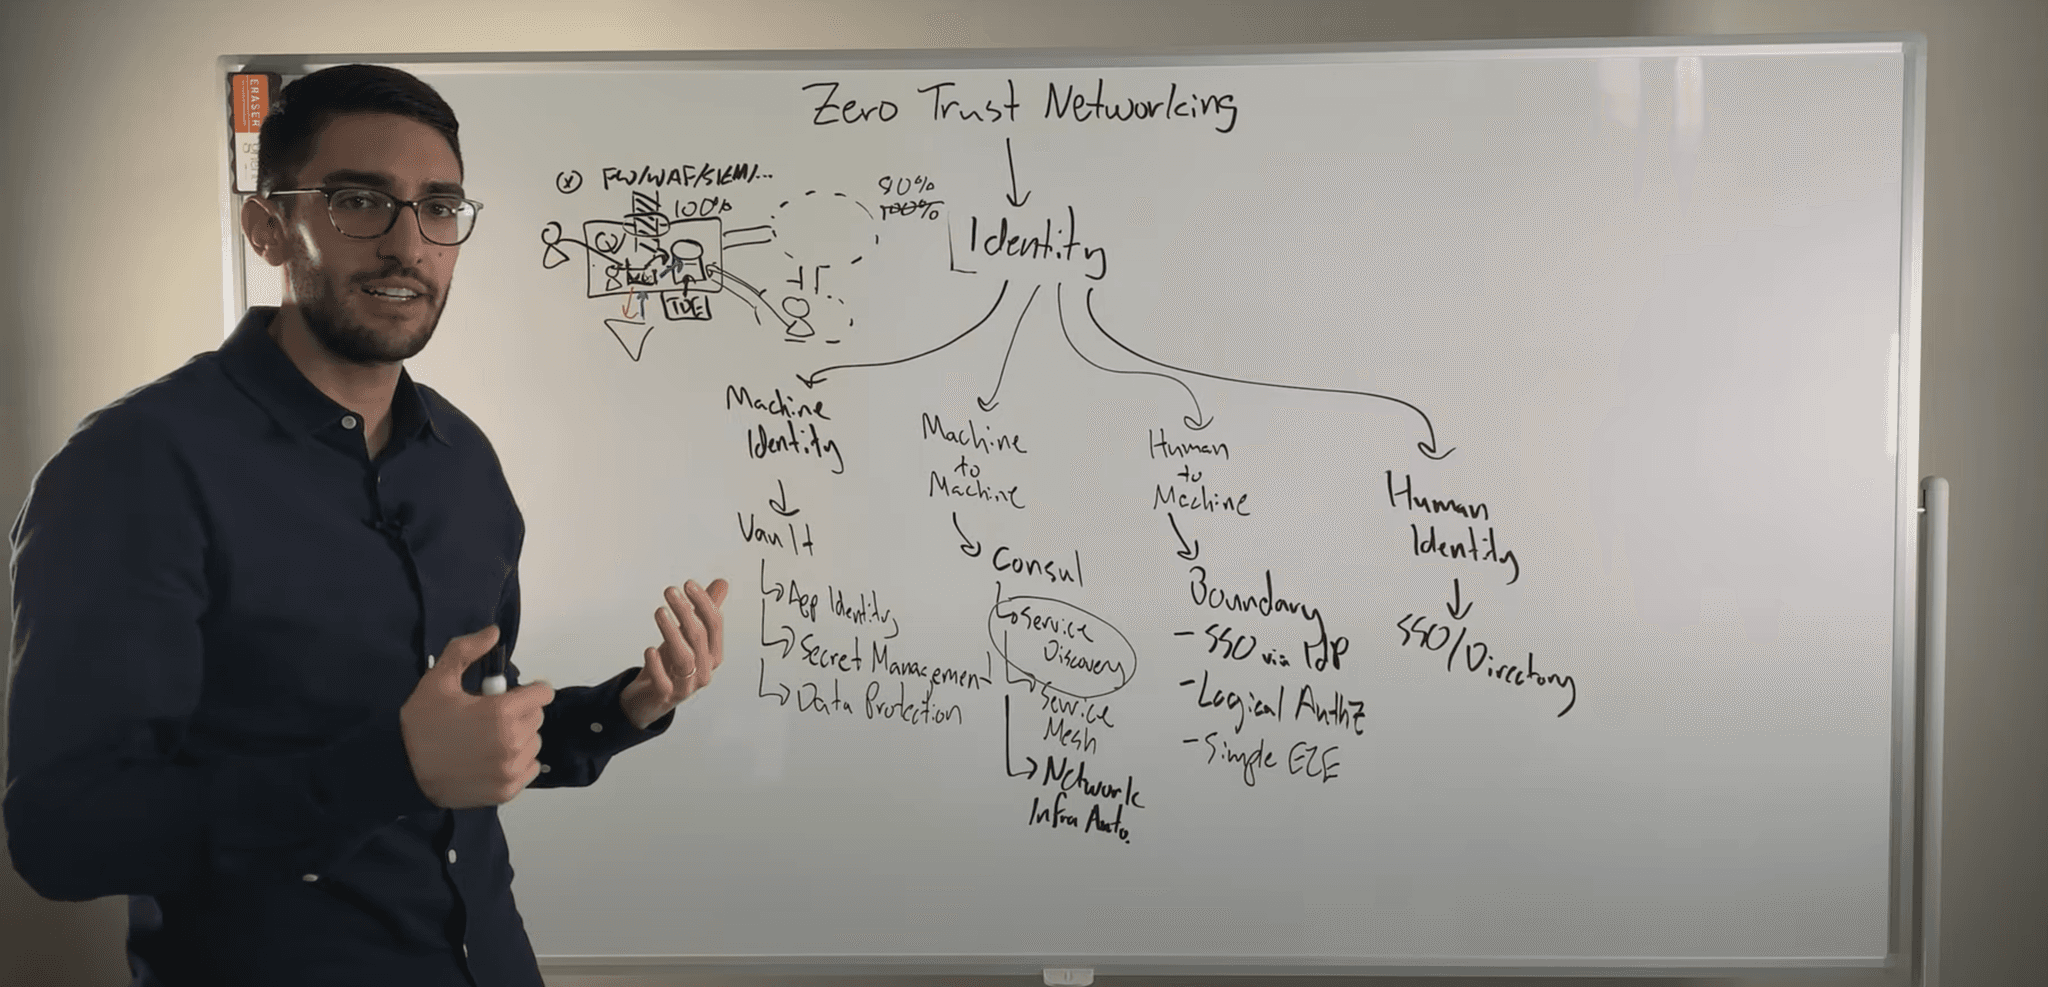 ERASER
Zero Trust Networking
FW/WAF/SIEM/...
100%
90%
100%
TDE
Identity
Machine
Identity
Vault
App Identity
Secret Management
Data Protection
Machine
to
Machine
Consul
Service
Discovery
Service
Mesh
Network
Infra Auto.
Human
to
Machine
Boundary
- SSO via IdP
- Logical AuthZ
- Simple E2E
Human
Identity
SSO/Directory